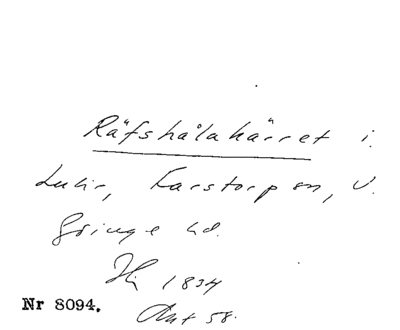 Räfshålakärret i.
Luhr, Karstorp sn, V.
Göinge hd.
1834
Nr 8094.
Akt 58.